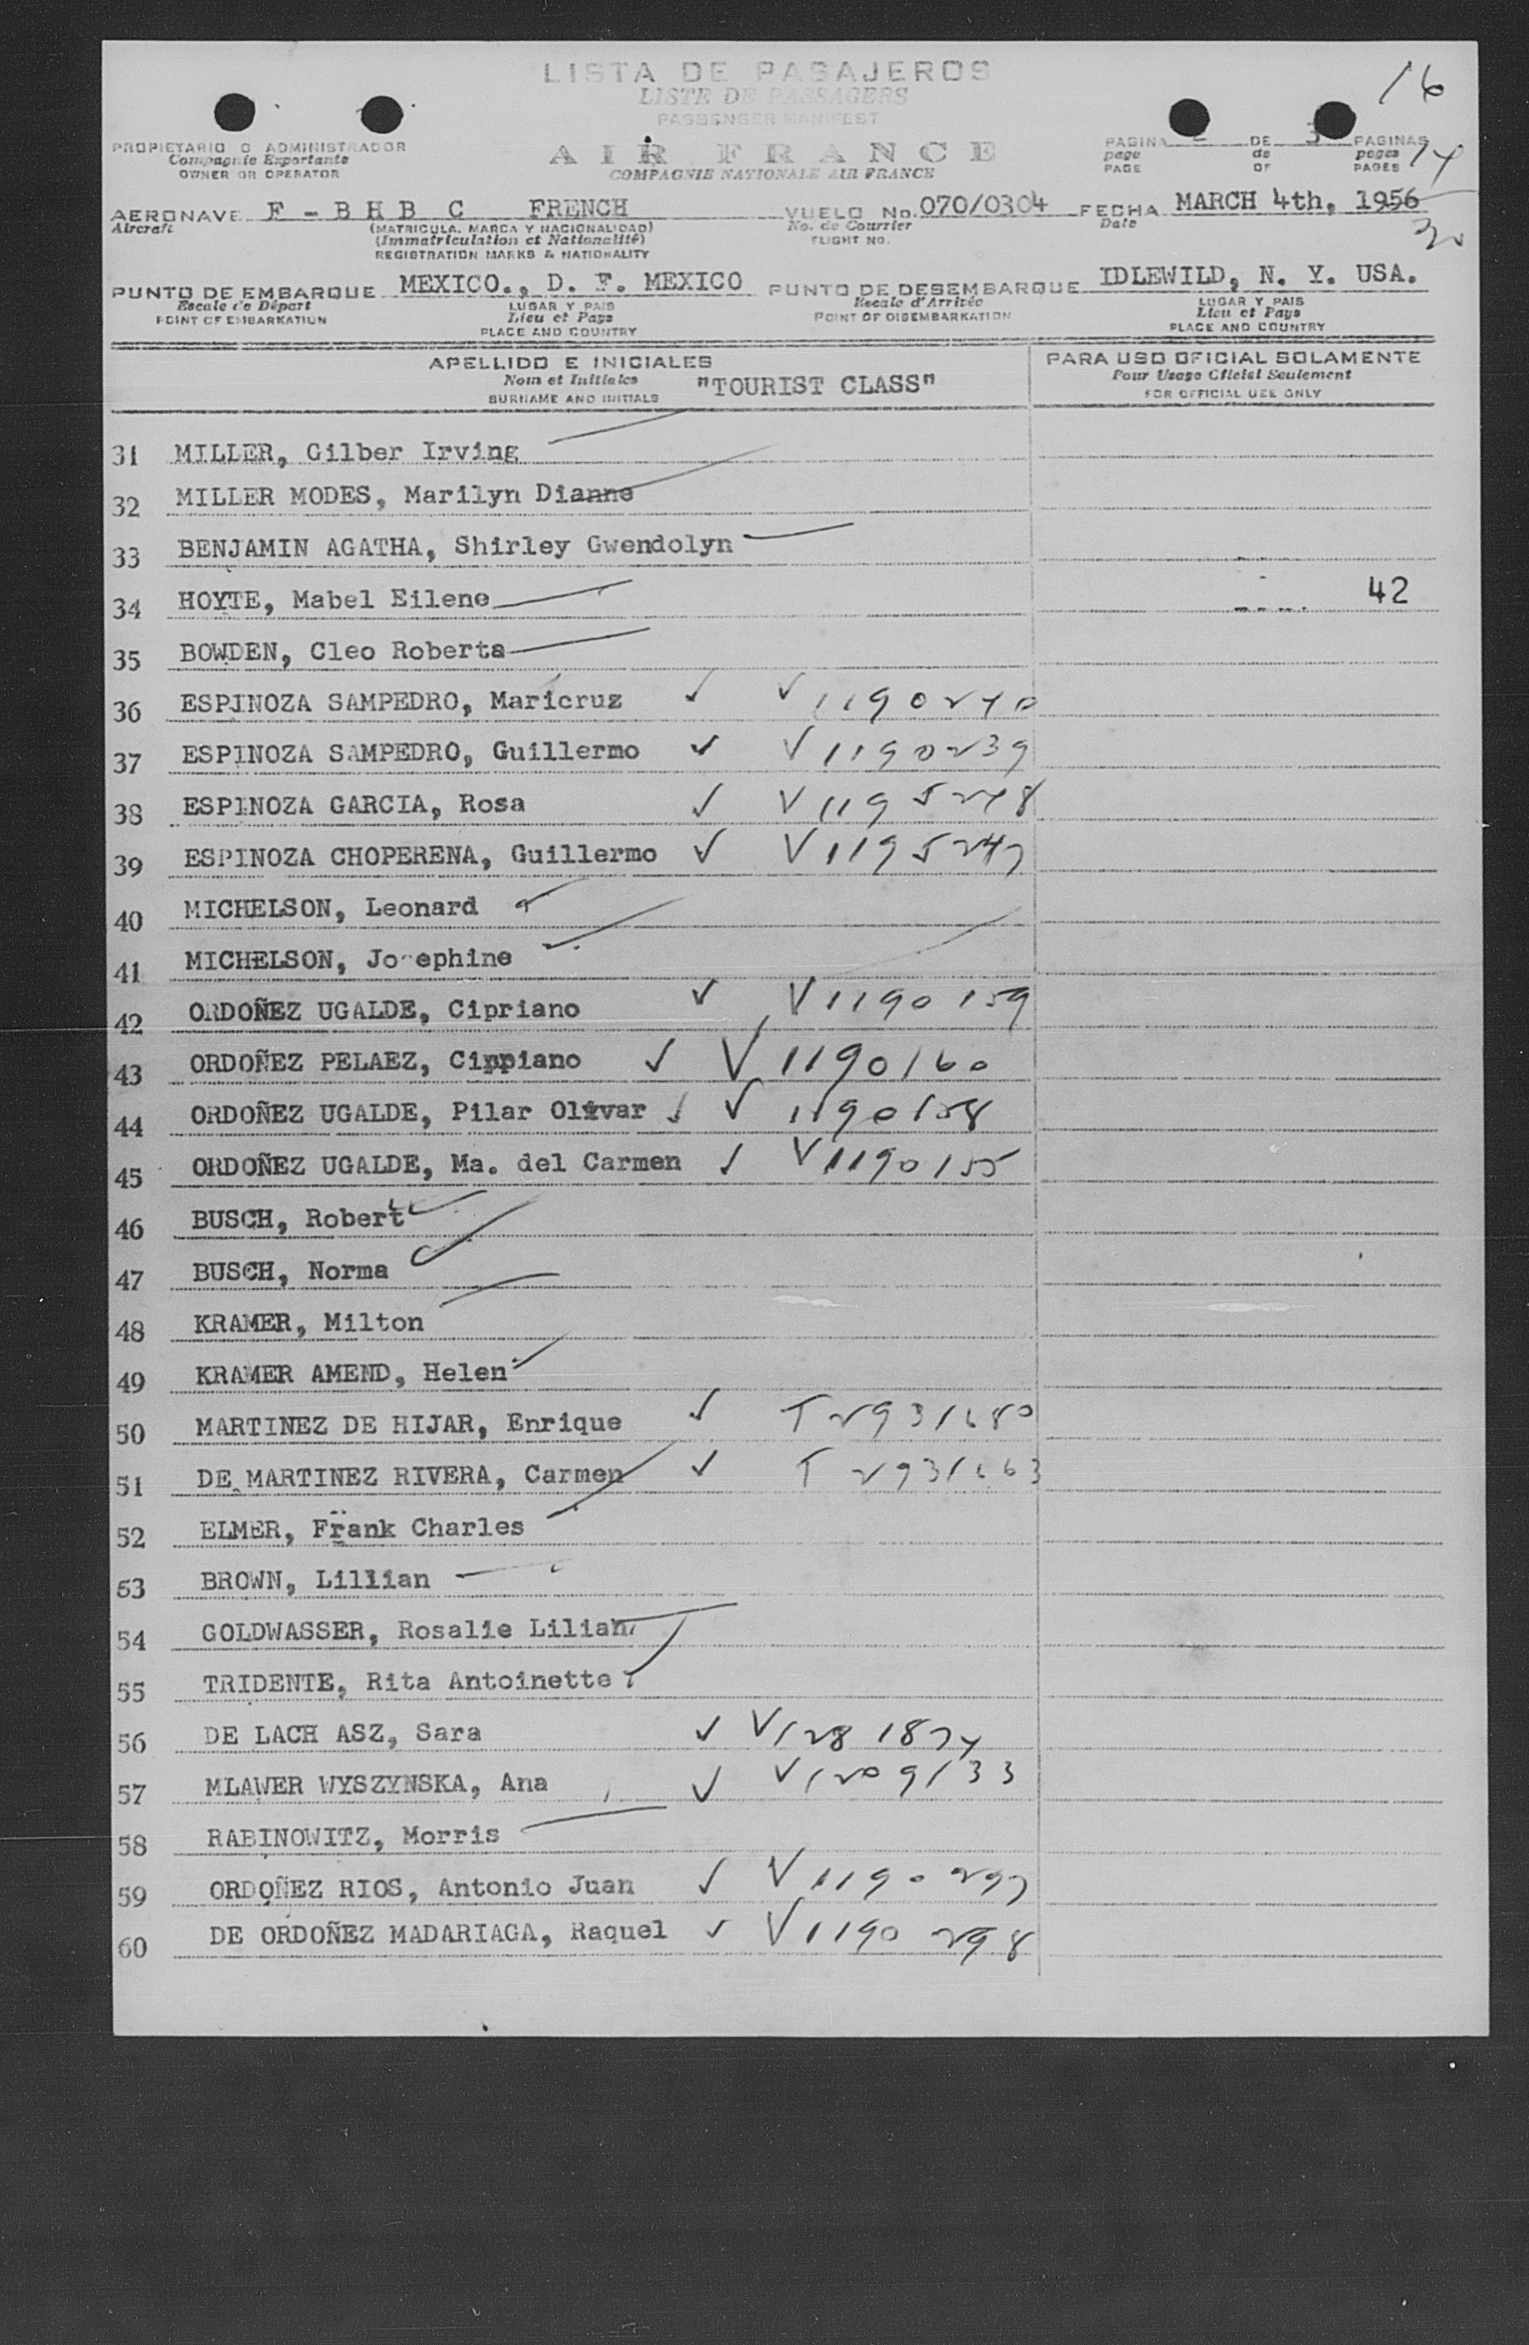 LISTA DE PASAJEROS
LISTE DE PASSAGERS
PASSENGER MANIFEST
16
PROPIETARIO O ADMINISTRADOR
Compagnie Exportante
OWNER OR OPERATOR
AIR FRANCE
COMPAGNIE NATIONALE AIR FRANCE
PAGINA DE 3 PAGINAS
page de pages
PAGE OF PAGES
14
AERONAVE F - B H B C FRENCH VUELO No. 070/0304 FECHA MARCH 4th, 1956
Aircraft (MATRICULA. MARCA Y NACIONALIDAD) No. de Courrier Date
(Immatriculation et Nationalité) FLIGHT NO.
REGISTRATION MARKS & NATIONALITY
PUNTO DE EMBARQUE MEXICO., D. F. MEXICO PUNTO DE DESEMBARQUE IDLEWILD, N. Y. USA.
Escale de Départ LUGAR Y PAIS Escale d'Arrivée LUGAR Y PAIS
POINT OF EMBARKATION Lieu et Pays POINT OF DISEMBARKATION Lieu et Pays
PLACE AND COUNTRY PLACE AND COUNTRY
APELLIDO E INICIALES PARA USO OFICIAL SOLAMENTE
Nom et Initiales "TOURIST CLASS" Pour Usage Officiel Seulement
SURNAME AND INITIALS FOR OFFICIAL USE ONLY
31 MILLER, Gilber Irving
32 MILLER MODES, Marilyn Dianne
33 BENJAMIN AGATHA, Shirley Gwendolyn
34 HOYTE, Mabel Eilene 42
35 BOWDEN, Cleo Roberta
36 ESPINOZA SAMPEDRO, Maricruz ✓ V 1190240
37 ESPINOZA SAMPEDRO, Guillermo ✓ V 1190239
38 ESPINOZA GARCIA, Rosa ✓ V 1195248
39 ESPINOZA CHOPERENA, Guillermo ✓ V 1195247
40 MICHELSON, Leonard
41 MICHELSON, Josephine
42 ORDOÑEZ UGALDE, Cipriano ✓ V 1190159
43 ORDOÑEZ PELAEZ, Cippiano ✓ V 1190160
44 ORDOÑEZ UGALDE, Pilar Olivar ✓ V 1190158
45 ORDOÑEZ UGALDE, Ma. del Carmen ✓ V 1190155
46 BUSCH, Robert
47 BUSCH, Norma
48 KRAMER, Milton
49 KRAMER AMEND, Helen
50 MARTINEZ DE HIJAR, Enrique ✓ T 2931680
51 DE MARTINEZ RIVERA, Carmen ✓ T 2931663
52 ELMER, Frank Charles
53 BROWN, Lillian
54 GOLDWASSER, Rosalie Lilian
55 TRIDENTE, Rita Antoinette
56 DE LACH ASZ, Sara ✓ V 1281874
57 MLAWER WYSZYNSKA, Ana ✓ V 1209133
58 RABINOWITZ, Morris
59 ORDOÑEZ RIOS, Antonio Juan ✓ V 1190297
60 DE ORDOÑEZ MADARIAGA, Raquel ✓ V 1190298